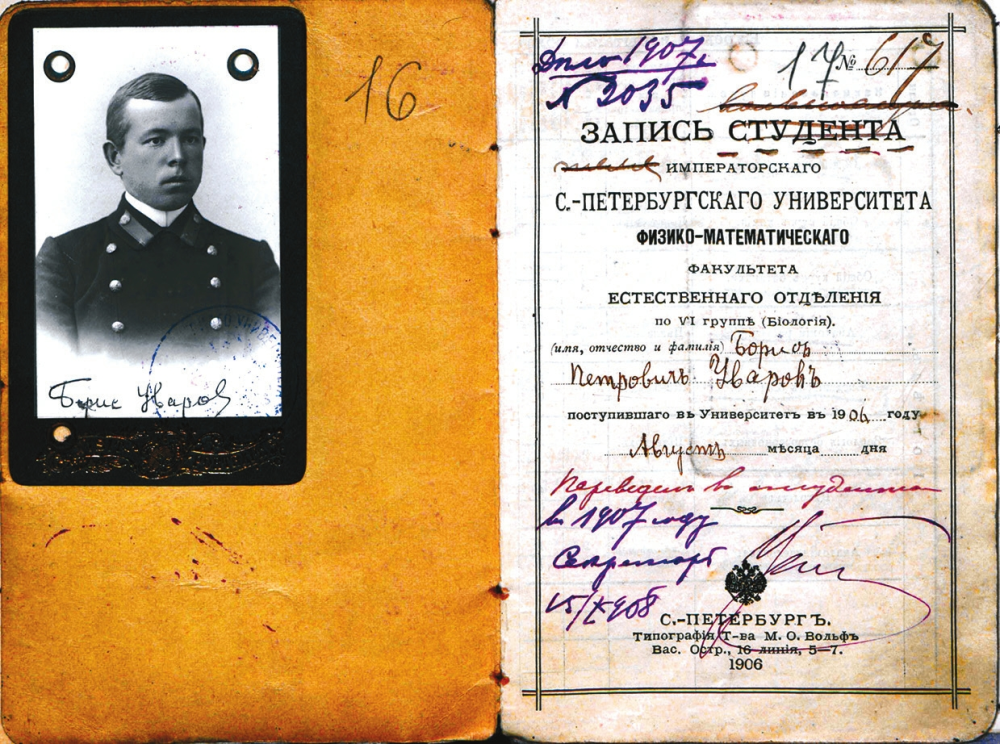 16
Борис Уваров
Дѣло 1907 г.
N 2035
17 № 617
ЗАПИСЬ СТУДЕНТА
ИМПЕРАТОРСКАГО
С.-ПЕТЕРБУРГСКАГО УНИВЕРСИТЕТА
ФИЗИКО-МАТЕМАТИЧЕСКАГО
ФАКУЛЬТЕТА
ЕСТЕСТВЕННАГО ОТДѢЛЕНІЯ
по VI группѣ (Біологія).
(имя, отчество и фамилія) Борисъ
Петровичъ Уваровъ
поступившаго въ Университетъ въ 1906 году
Августъ мѣсяца дня
Переведенъ въ студенты
в 1907 году
Секретарь
15/X 908
С.-ПЕТЕРБУРГЪ.
Типографія Т-ва М. О. Вольфъ
Вас. Остр., 16 линія, 5—7.
1906